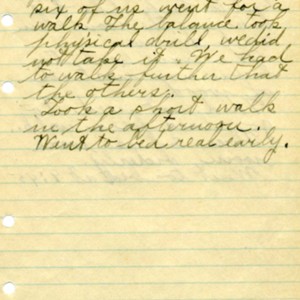 six of us went for a
walk The balance took
physical drill, we did
not take it. We had
to walk further that
the others.
Took a short walk
in the afternoon.
Went to bed real early.